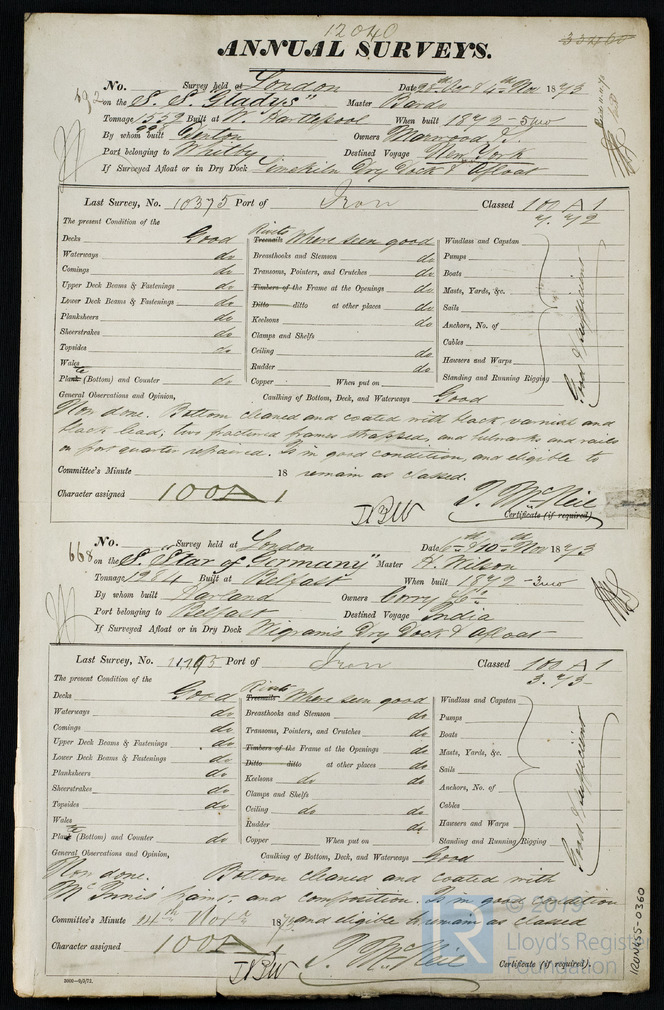 12040
ANNUAL SURVEYS.
No. 692 Survey held at London Date 28th Oct & 4th Nov 1873
on the S. S. "Gladys" Master Bards
Tonnage 1359 Built at W. Hartlepool When built 1872-5mo
By whom built Denton Owners Marwood J.
Port belonging to Whitby Destined Voyage New York
If Surveyed Afloat or in Dry Dock Limekiln Dry Dock & Afloat
Last Survey, No. 10375 Port of Iron Classed 100 A 1
The present Condition of the
Decks Good Treenails Rivets Where seen good Windlass and Capstan
Waterways do Breasthooks and Stemson do Pumps
Comings do Transoms, Pointers, and Crutches do Boats
Upper Deck Beams & Fastenings do Timbers of the Frame at the Openings do Masts, Yards, &c.
Lower Deck Beams & Fastenings do Ditto ditto at other places do Sails
Planksheers do Keelsons do Anchors, No. of
Sheerstrakes do Clamps and Shelfs Cables
Topsides do Ceiling do Hawsers and Warps
Wales Rudder do Standing and Running Rigging
Plate (Bottom) and Counter do Copper When put on Good & sufficient
General Observations and Opinion, Caulking of Bottom, Deck, and Waterways Good
Now done. Bottom cleaned and coated with black varnish and
black lead; two fractured frames strapped, and bulwarks and rails
on port quarter repaired. Is in good condition, and eligible to
Committee's Minute 18 remain as classed.
Character assigned 100A1 J. McNeil
Certificate (if required)
No. 668 Survey held at London Date 6th & 10th Nov 1873
on the S. "Star of Germany" Master H. Wilson
Tonnage 1284 Built at Belfast When built 1872-3mo
By whom built Harland Owners Corry & Co
Port belonging to Belfast Destined Voyage India
If Surveyed Afloat or in Dry Dock Wigrams Dry Dock & Afloat
Last Survey, No. Port of Iron Classed 100 A 1
3.73
The present Condition of the
Decks Good Treenails Rivets Where seen good Windlass and Capstan
Waterways do Breasthooks and Stemson do Pumps
Comings do Transoms, Pointers, and Crutches do Boats
Upper Deck Beams & Fastenings do Timbers of the Frame at the Openings do Masts, Yards, &c.
Lower Deck Beams & Fastenings do Ditto ditto at other places do Sails
Planksheers do Keelsons do do Anchors, No. of
Sheerstrakes do Clamps and Shelfs Cables
Topsides do Ceiling do do Hawsers and Warps
Wales Rudder do Standing and Running Rigging
Plate (Bottom) and Counter do Copper When put on Good & sufficient
General Observations and Opinion, Caulking of Bottom, Deck, and Waterways Good
Now done. Bottom cleaned and coated with
McInnis' paint, and composition. Is in good condition
Committee's Minute 14th Novr 1873 and eligible to remain as classed
Character assigned 100A1 J. McNeil
Certificate (if required).
3000—9/2/72.
IRON455-0360
© 2019
Lloyd's Register
Foundation